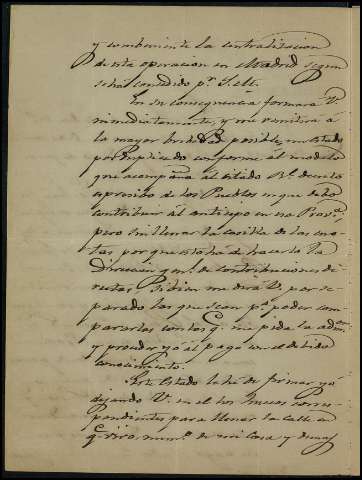 y combinente la centralizacion
de esta operacion en Madrid segun
se ha concedido pr. S. Ilt.
En su consecuencia formará V.
inmediatamente, y me remitirá á
la mayor brevedad posible, un estado
por duplicado conforme al modelo
que acompaña al citado Rl. decreto
espresivo de los Pueblos en que debo
contribuir al anticipo en esa Prova.,
pero sin llenar la casilla de las cuo-
tas porque esto ha de hacerlo la
Direccion gral. de contribuciones di-
rectas. Si bien me dirá V. por se-
parado las que sean pa. poder com-
pararlas con las q. me pida la admon.
y proceder yo al pago con el debido
conocimiento.
Este Estado lo he de firmar yo
dejando V. en el los huecos corres-
pondientes para llenar la calle en
q. vivo, numo. de mi casa y demas